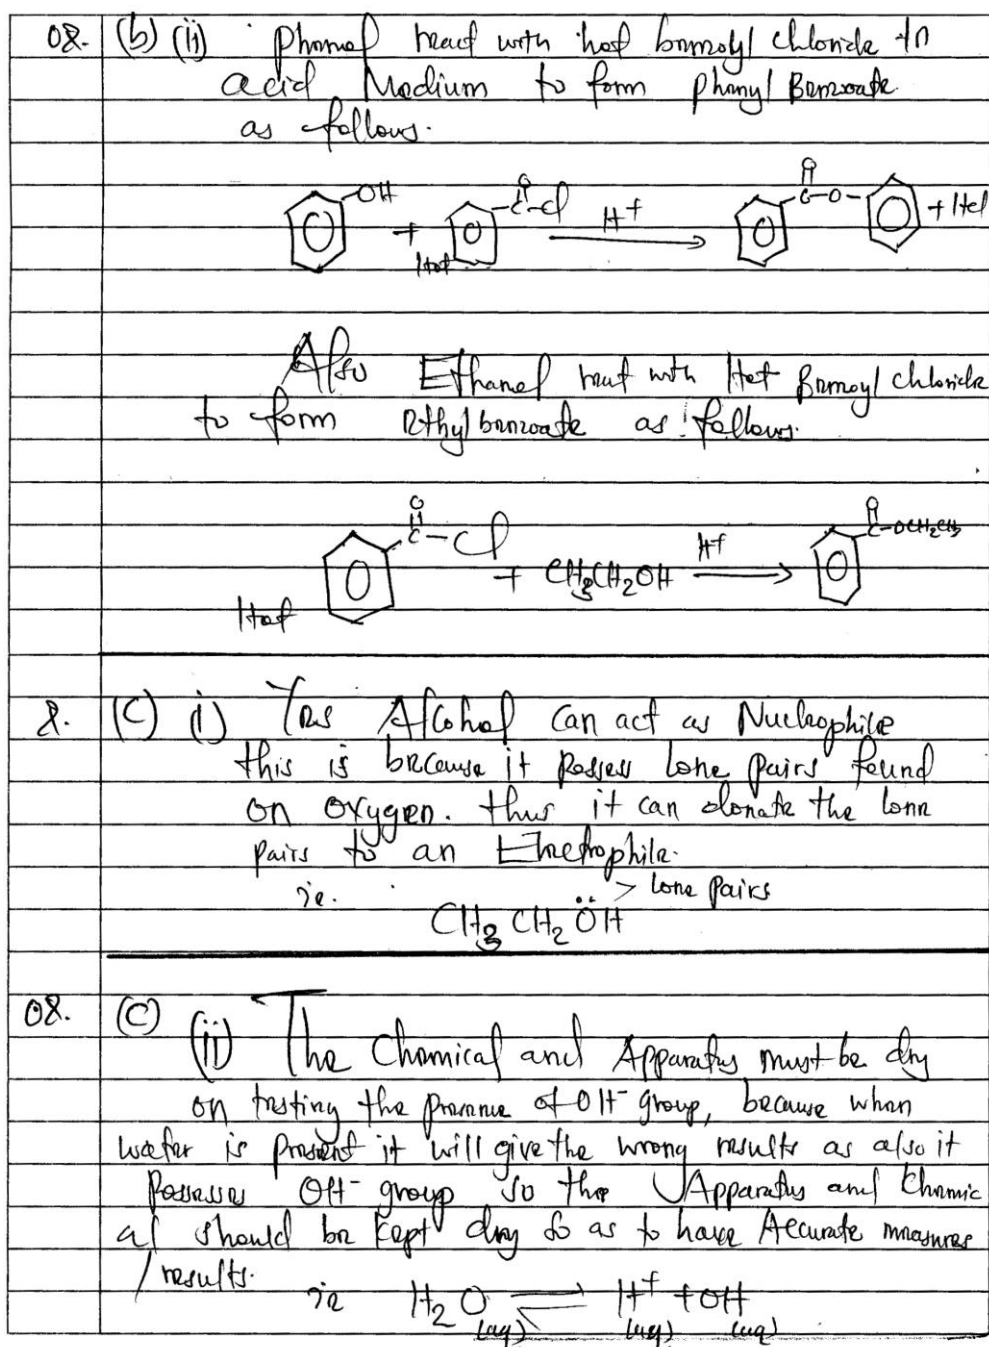 08. (b) (ii) phenol react with hot benzoyl chloride in
acid Medium to form phenyl Benzoate
as follows.
OH + Hot C O Cl H+ C O O + HCl
Also Ethanol react with Hot Benzoyl chloride
to form Ethyl benzoate as follows.
Hot C O Cl + CH3CH2OH H+ C O OCH2CH3
8. (C) i) Yes Alcohol can act as Nucleophile
this is because it Possess lone pairs found
on oxygen. thus it can donate the lone
pairs to an Electrophile.
ie. > lone pairs
CH3 CH2 ÖH
08. (C)
(ii) The Chemical and Apparatus must be dry
on testing the presence of OH- group, because when
water is present it will give the wrong results as also it
Possesses OH- group so the Apparatus and Chemic
al should be kept dry so as to have Accurate measures
/ results.
ie H2O(aq) ⇌ H+(aq) + OH(aq)